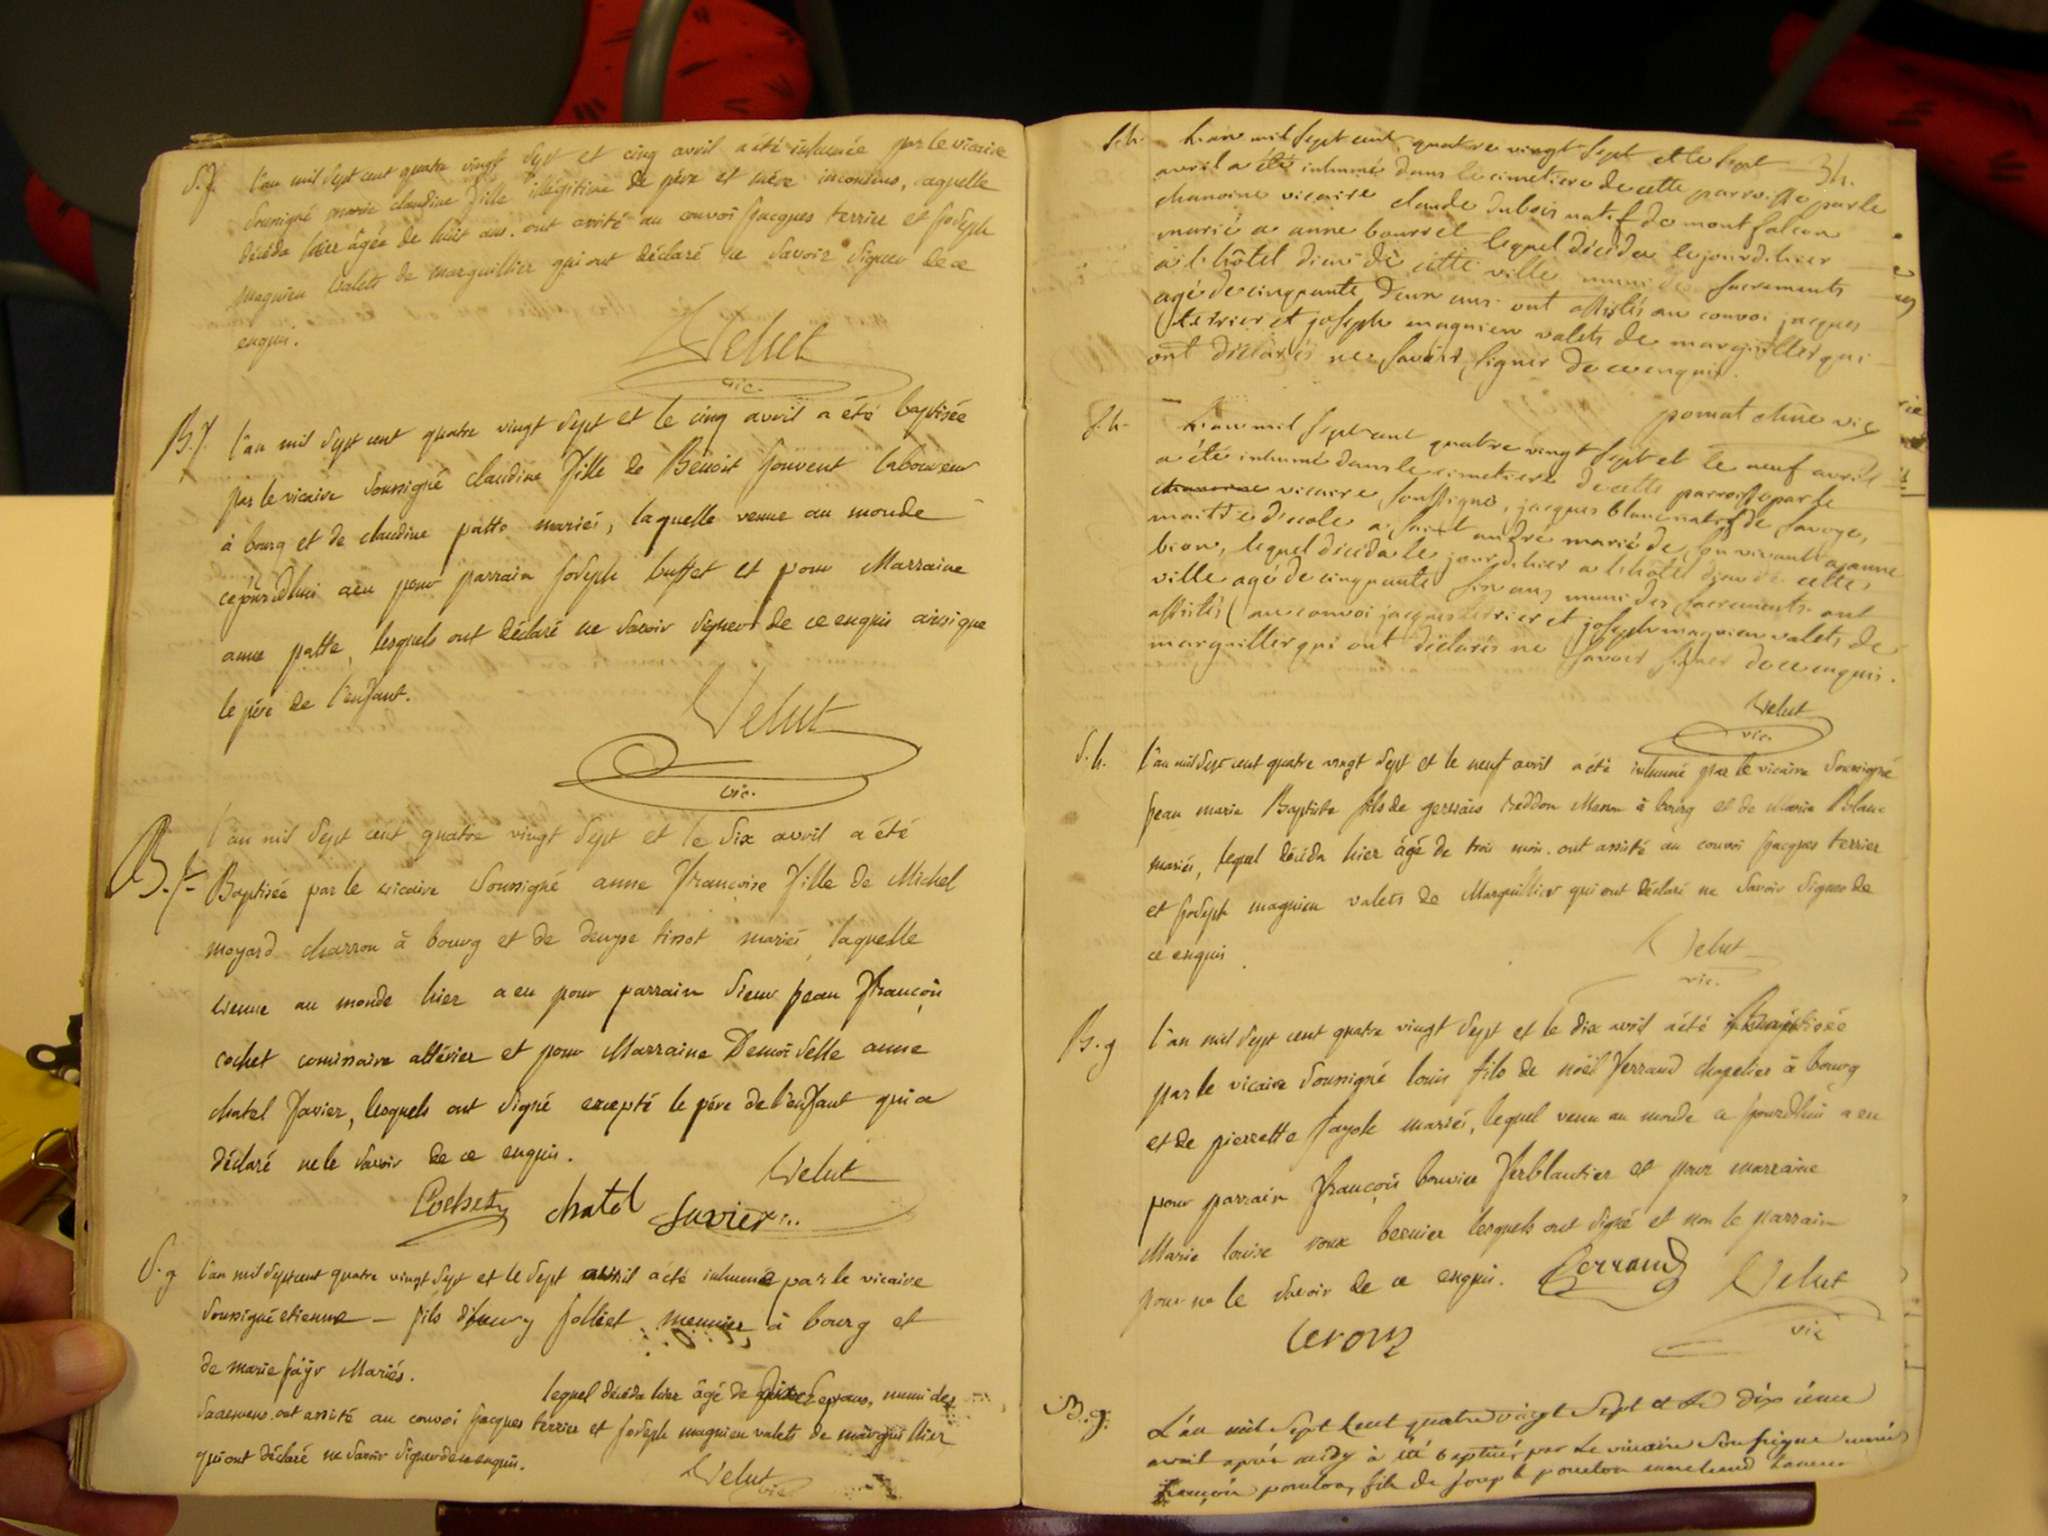 S.f. l'an mil sept cent quatre vingt sept et cinq avril a été inhumée par le vicaire
soussigné marie claudine fille illégitime de père et mère inconnus, laquelle
décéda hier âgée de huit ans. ont assité au convoi jacques terrier et joseph
magnien valets de marguillier qui ont déclaré ne savoir signer de ce
enquis.
Velut
vic.
B.f. l'an mil sept cent quatre vingt sept et le cinq avril a été baptisée
par le vicaire soussigné claudine fille de Benoit jouvent laboureur
à bourg et de claudine patte mariés, laquelle venue au monde
cejourdhui a eu pour parrain joseph buffet et pour Marraine
anne patte, lesquels ont déclaré ne savoir signer de ce enquis ainsi que
le père de l'enfant.
Velut
vic.
l'an mil sept cent quatre vingt sept et le dix avril a été
B.f. Baptisée par le vicaire soussigné anne françoise fille de Michel
moyard charron à bourg et de denyse tissot mariés, laquelle
venue au monde hier a eu pour parrain sieur jean françois
cochet commissaire altérier et pour Marraine Demoiselle anne
chatel favier, lesquels ont signé excepté le père de l'enfant qui a
déclaré ne le savoir de ce enquis.
Velut
Cochet chatel favier
S.g l'an mil sept cent quatre vingt sept et le sept avril a été inhumé par le vicaire
soussigné etienne fils jolliet meunier à bourg et
de marie Mariés.
lequel décéda hier âgé de ans, muni des
sacremens. ont assité au convoi jacques terrier et joseph magnien valets de marguillier
qui ont déclaré ne savoir signer de ce enquis.
Velut
vic
34.
S.h. L'an mil sept cent quatre vingt sept et le sept
avril a été inhumé dans le cimetiere de cette parroisse par le
chanoine vicaire claude dubois natif de montfalcon
marié a anne bourret lequel décéda le jour d'hier
a l'hôtel dieu de cette ville muni des sacrements
agé de cinquante deux ans ont assistés au convoi jacques
terrier et joseph magnien valets de marguillier qui
ont déclarés ne savoir signer de ce enquis.
pomat chne vic
S.h. L'an mil sept cent quatre vingt sept et le neuf avril
a été inhumé dans le cimetiere de cette parroisse par le
chanoine vicaire soussigné, jacques blanc natif de savoye,
maitre d'ecole a saint andré marié de son vivant a anne
bion, lequel décéda le jour d'hier a l'hôtel dieu de cette
ville agé de cinquante six ans muni des sacrements. ont
assistés au convoi jacques terrier et joseph magnien valets de
marguillier qui ont déclarés ne savoir signer de ce enquis.
Velut
vic.
S.h. l'an mil sept cent quatre vingt sept et le neuf avril a été inhumé par le vicaire soussigné
jean marie Baptiste fils de gervais à bourg et de Marie Blanc
mariés, lequel décéda hier âgé de trois mois. ont assité au convoi jacques terrier
et joseph magnien valets de Marguillier qui ont déclaré ne savoir signer de
ce enquis
Velut
vic.
B.g l'an mil sept cent quatre vingt sept et le dix avril a été Baptisée
par le vicaire soussigné louis fils de noël ferrand chapelier à bourg
et de pierrette fayole mariés, lequel venu au monde ce jourdhui a eu
pour parrain françois bouvier ferblantier et pour marraine
Marie louise roux bernier lesquels ont signé et non le parrain
pour ne le savoir de ce enquis. ferrand Velut
vic
leroux
B.g. L'an mil sept cent quatre vingt sept et le dixieme
avril après midy à été baptisé par le vicaire soussigné
françois fils de joseph marchand